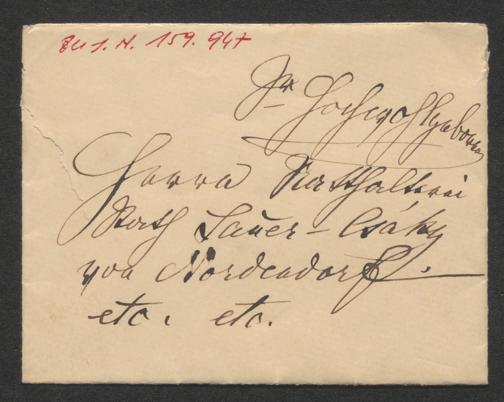 H. I. N. 159.947
Sr Hochwohlgeboren
Herrn Statthalterei
Rath Sauer-Csáky
von Nordendorf.
etc. etc.